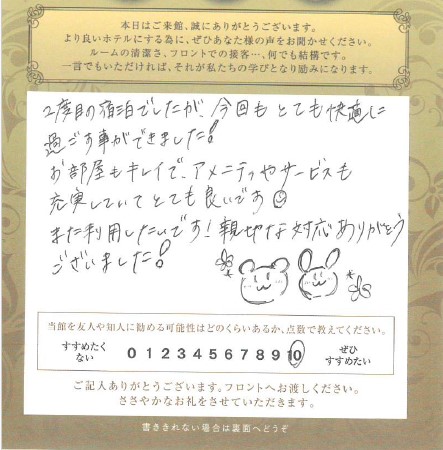 本日はご来館、誠にありがとうございます。
より良いホテルにする為に、ぜひあなた様の声をお聞かせください。
ルームの清潔さ、フロントでの接客…、何でも結構です。
一言でもいただければ、それが私たちの学びとなり励みになります。
2度目の宿泊でしたが、今回もとても快適に
過ごす事ができました!
お部屋もキレイで、アメニティやサービスも
充実していてとても良いです
また利用したいです!親切な対応ありがとう
ございました!
当館を友人や知人に勧める可能性はどのくらいあるか、点数で教えてください。
すすめたくない 0 1 2 3 4 5 6 7 8 9 10 ぜひすすめたい
ご記入ありがとうございます。フロントへお渡しください。
ささやかなお礼をさせていただきます。
書ききれない場合は裏面へどうぞ